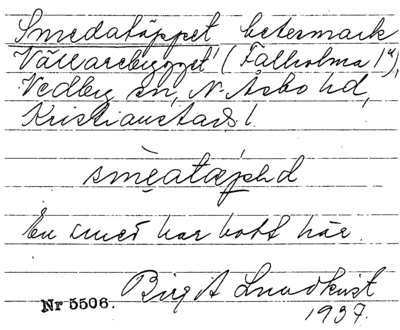 Smedatäppet, betesmark
Vällarebygget (Fälholma 1⁴),
Vedby sn, N. Åsbo hd,
Kristianstads l.
smèatæpəd
En smed har bott här.
Birg A Lundkvist
Nr 5506.
1937.